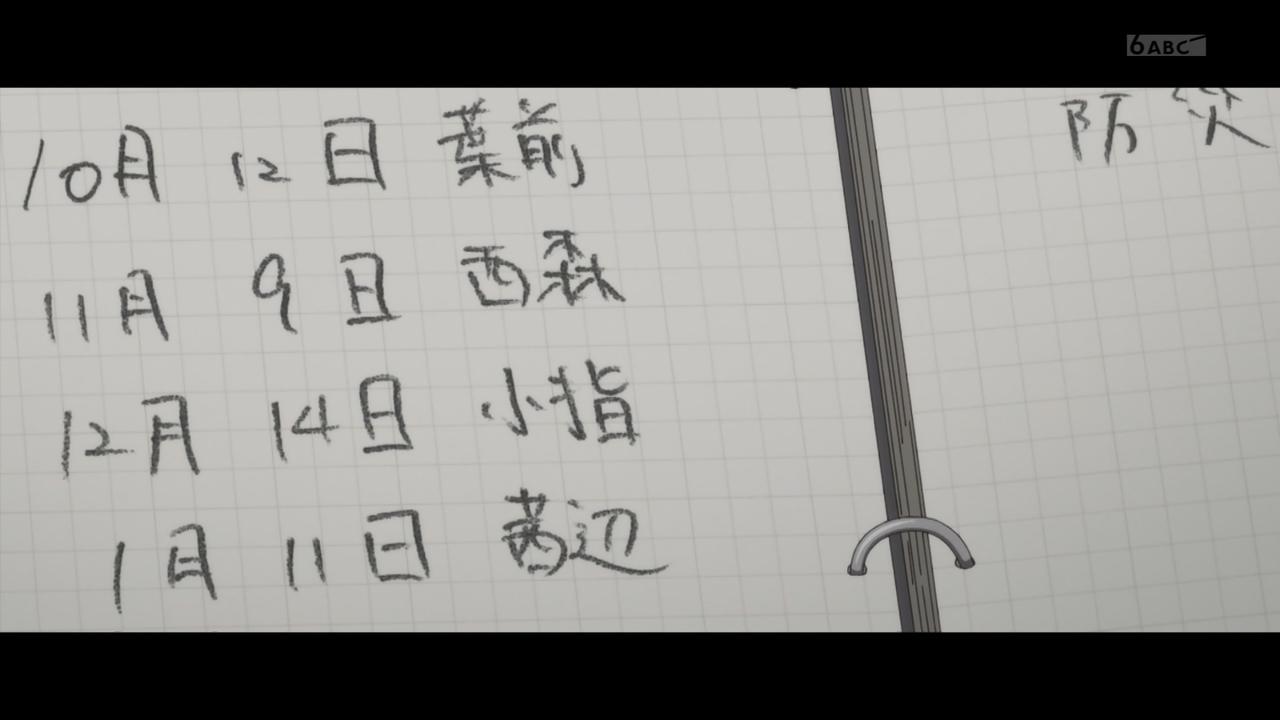 10月 12日 葉前
11月 9日 西森
12月 14日 小指
1月 11日 茜辺
防災
6ABC